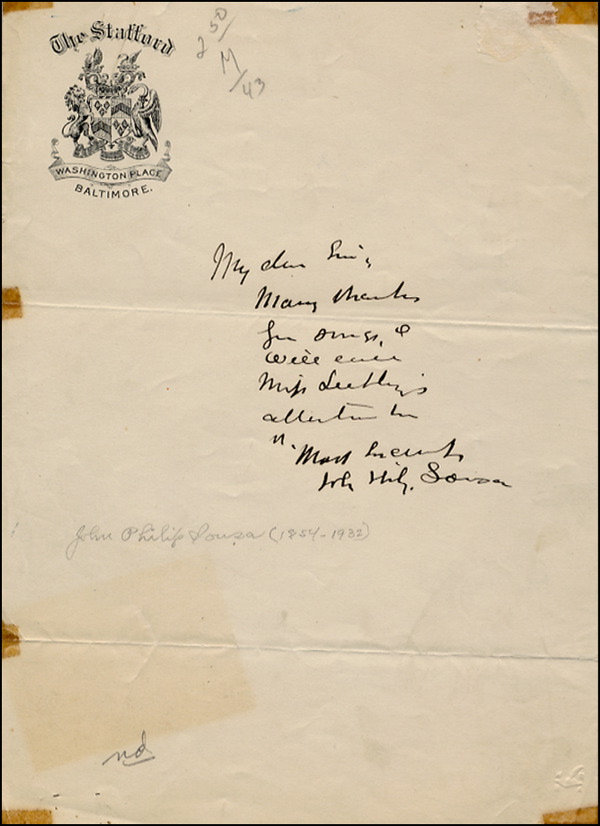 The Stafford
WASHINGTON PLACE
BALTIMORE.
2 50/
M/
43
My dear Sir;
Many thanks
for songs, I
will call
Miss
attention to
it.
Most Sincerely
John Philip Sousa
John Philip Sousa (1854-1932)
nd